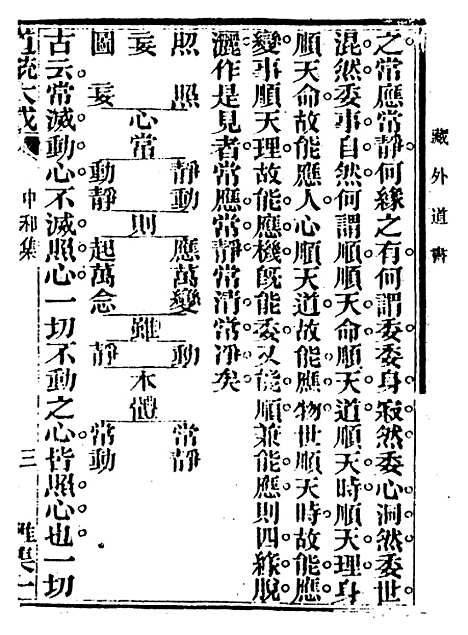 藏外道書
之常應常靜何緣之有何謂委委身寂然委心洞然委世
混然委事自然何謂順順天命順天道順天時順天理身
順天命故能應人心順天道故能應物世順天時故能應
變事順天理故能應機既能委又能順兼能應則四緣脫
灑作是見者常應常靜常清常凈矣
照 照 靜動 應萬變 動 常靜
妄 心常 則 雖 本體
圖 妄 動靜 起萬念 靜 常動
古云常滅動心不滅照心一切不動之心皆照心也一切
道統大成 中和集 三 集一